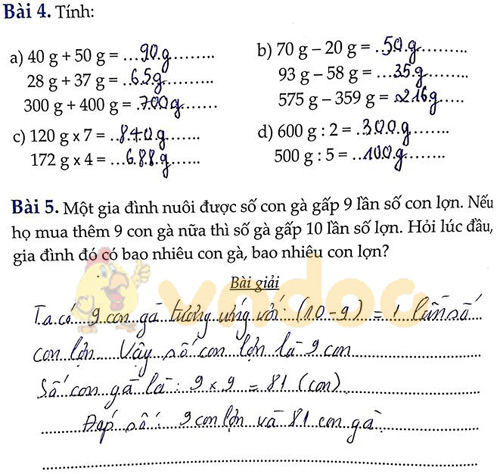 Bài 4. Tính:
a) 40 g + 50 g = ...90.g.........
b) 70 g – 20 g = .50.g..........
28 g + 37 g = ..65.g..........
93 g – 58 g = ....35.g........
300 g + 400 g = .700g.......
575 g – 359 g = .216g.....
c) 120 g x 7 = ..840.g.......
d) 600 g : 2 = .300.g.......
172 g x 4 = ...688.g......
500 g : 5 = ..100.g.......
Bài 5. Một gia đình nuôi được số con gà gấp 9 lần số con lợn. Nếu
họ mua thêm 9 con gà nữa thì số gà gấp 10 lần số lợn. Hỏi lúc đầu,
gia đình đó có bao nhiêu con gà, bao nhiêu con lợn?
vndoc
Bài giải
Ta có 9 con gà tương ứng với: (10-9) = 1 lần số
con lợn. Vậy số con lợn là 9 con
Số con gà là: 9 x 9 = 81 (con)
Đáp số: 9 con lợn và 81 con gà.